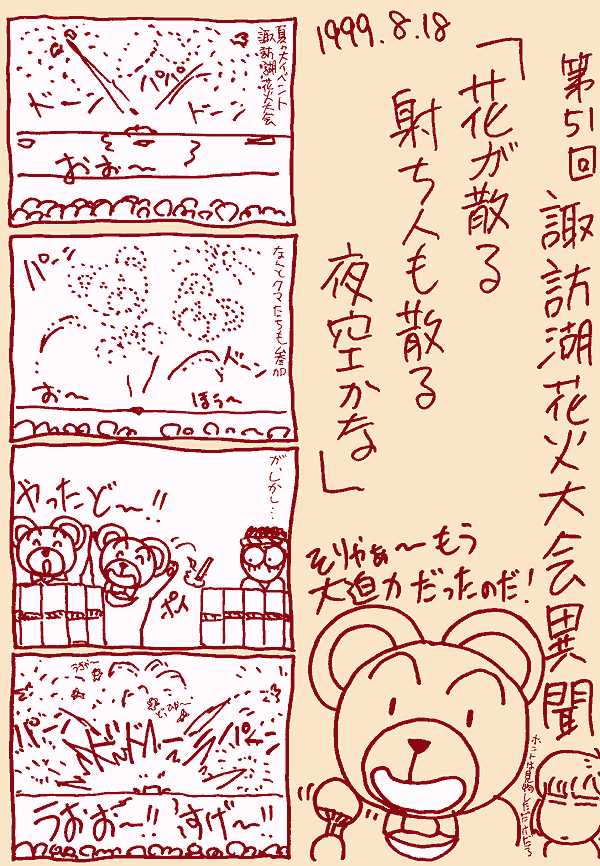 第51回 諏訪湖花火大会異聞
1999.8.18
「花が散る
射ち人も散る
夜空かな」
そりゃぁ〜もう
大迫力だったのだ!
ホントは見物しただけだろ
夏の大イベント
諏訪湖花火大会
ドーン
パパパ
ドーン
おぉ〜
なんとクマたちも参加
パーン
ドーン
お〜
ほう〜
が、しかし…
やったど〜!!
ポイ
うぎゃ〜
どっひゃ〜
パーン
ドドドーン
パーン
うおお〜!!
すげ〜!!